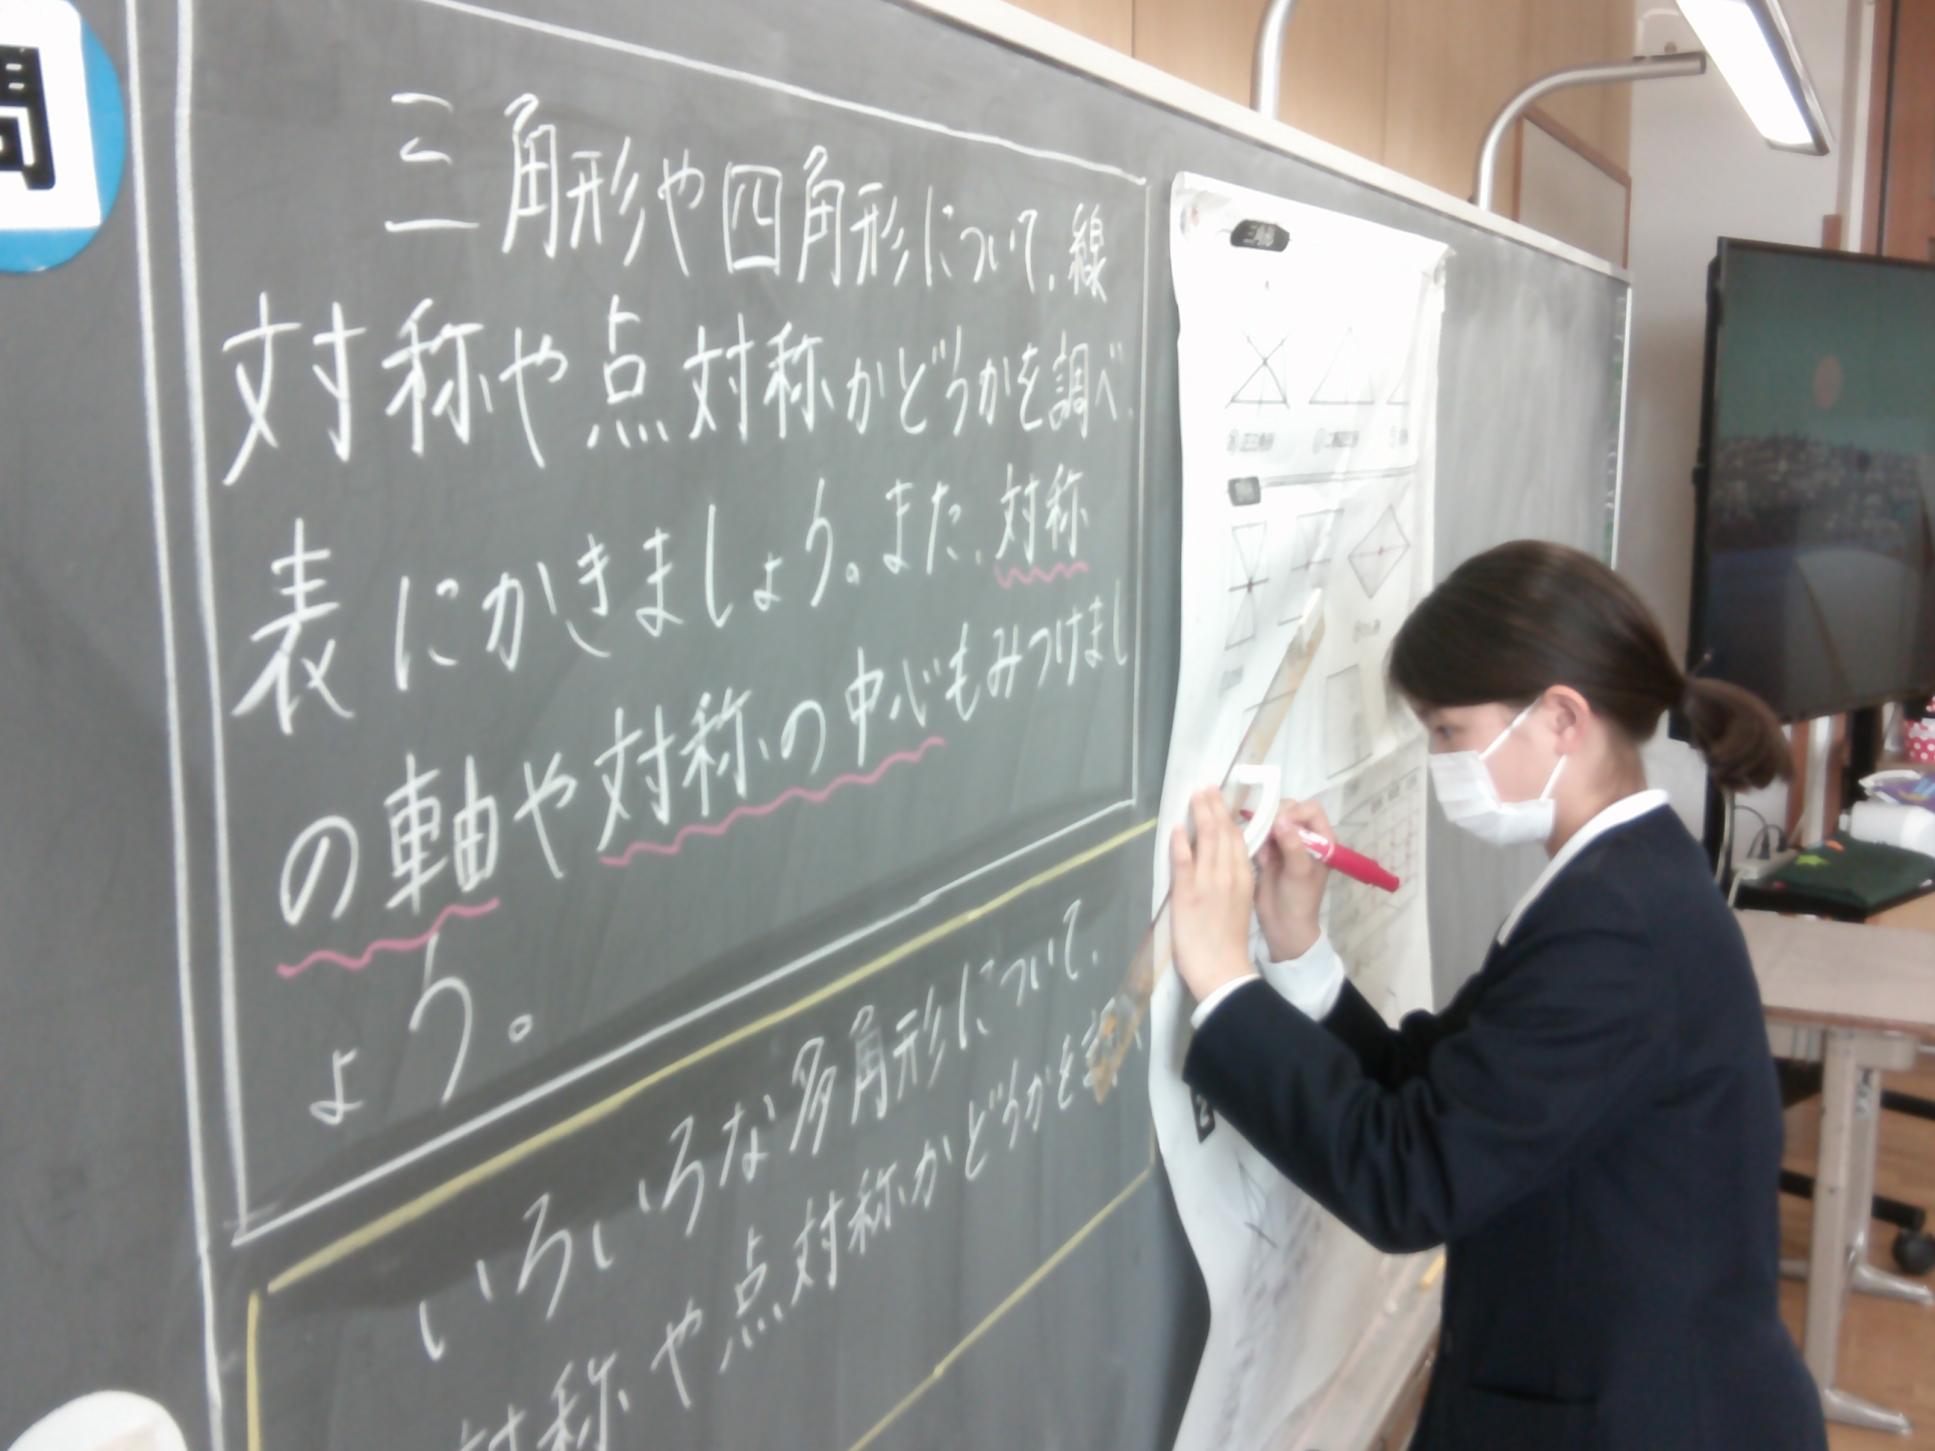 問
三角形や四角形について、線
対称や点対称かどうかを調べ、
表にかきましょう。また、対称
の軸や対称の中心もみつけまし
ょう。
いろいろな多角形について、
対称や点対称かどうかを調べ
三角形